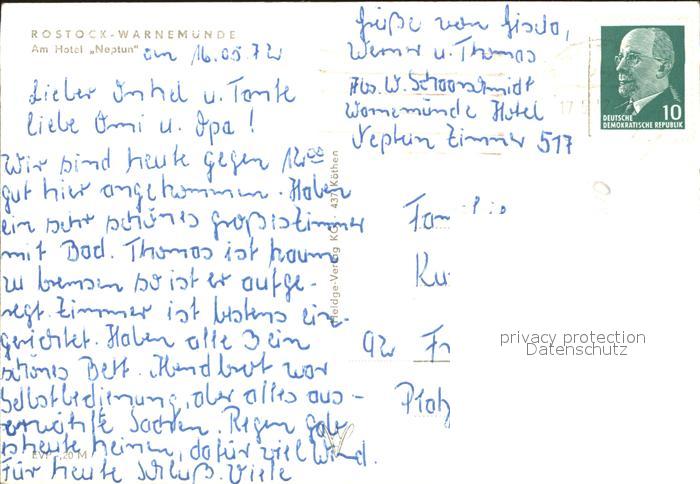 ROSTOCK-WARNEMÜNDE
Am Hotel „Neptun"
am 16.05.72
Lieber Onkel u. Tante
liebe Omi u. Opa!
Wir sind heute gegen 12⁰⁰
gut hier angekommen. Haben
ein sehr schönes großes Zimmer
mit Bad. Thomas ist kaum
zu bremsen so ist er aufge-
regt. Zimmer ist bestens ein-
gerichtet. Haben alle 3 ein
schönes Bett. Abendbrot war
Selbstbedienung, aber alles aus-
erwählte Sachen. Regen gab
es heute keinen, dafür viel Wind.
Für heute Schluß. Viele
EVP -,20 M
Grüße von Gisela,
Werner u. Thomas
Abs. W. Schaarschmidt
Warnemünde Hotel
Neptun Zimmer 517
Heldge-Verlag KG 437 Köthen
DEUTSCHE
DEMOKRATISCHE REPUBLIK
10
Fam
Ku
92 Fr
Platz
privacy protection
Datenschutz